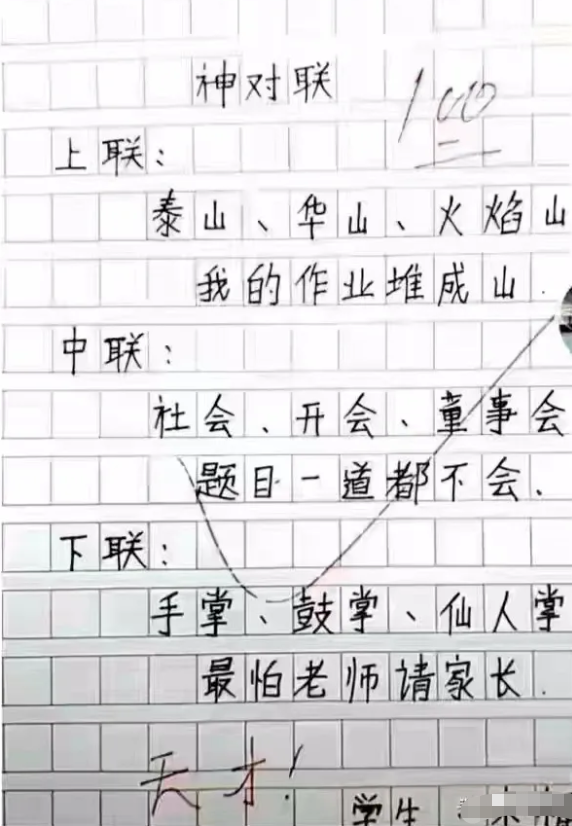 神对联
100
上联：
泰山、华山、火焰山
我的作业堆成山.
中联：
社会、开会、童事会
题目一道都不会.
下联：
手掌、鼓掌、仙人掌
最怕老师请家长.
天才！
学生：